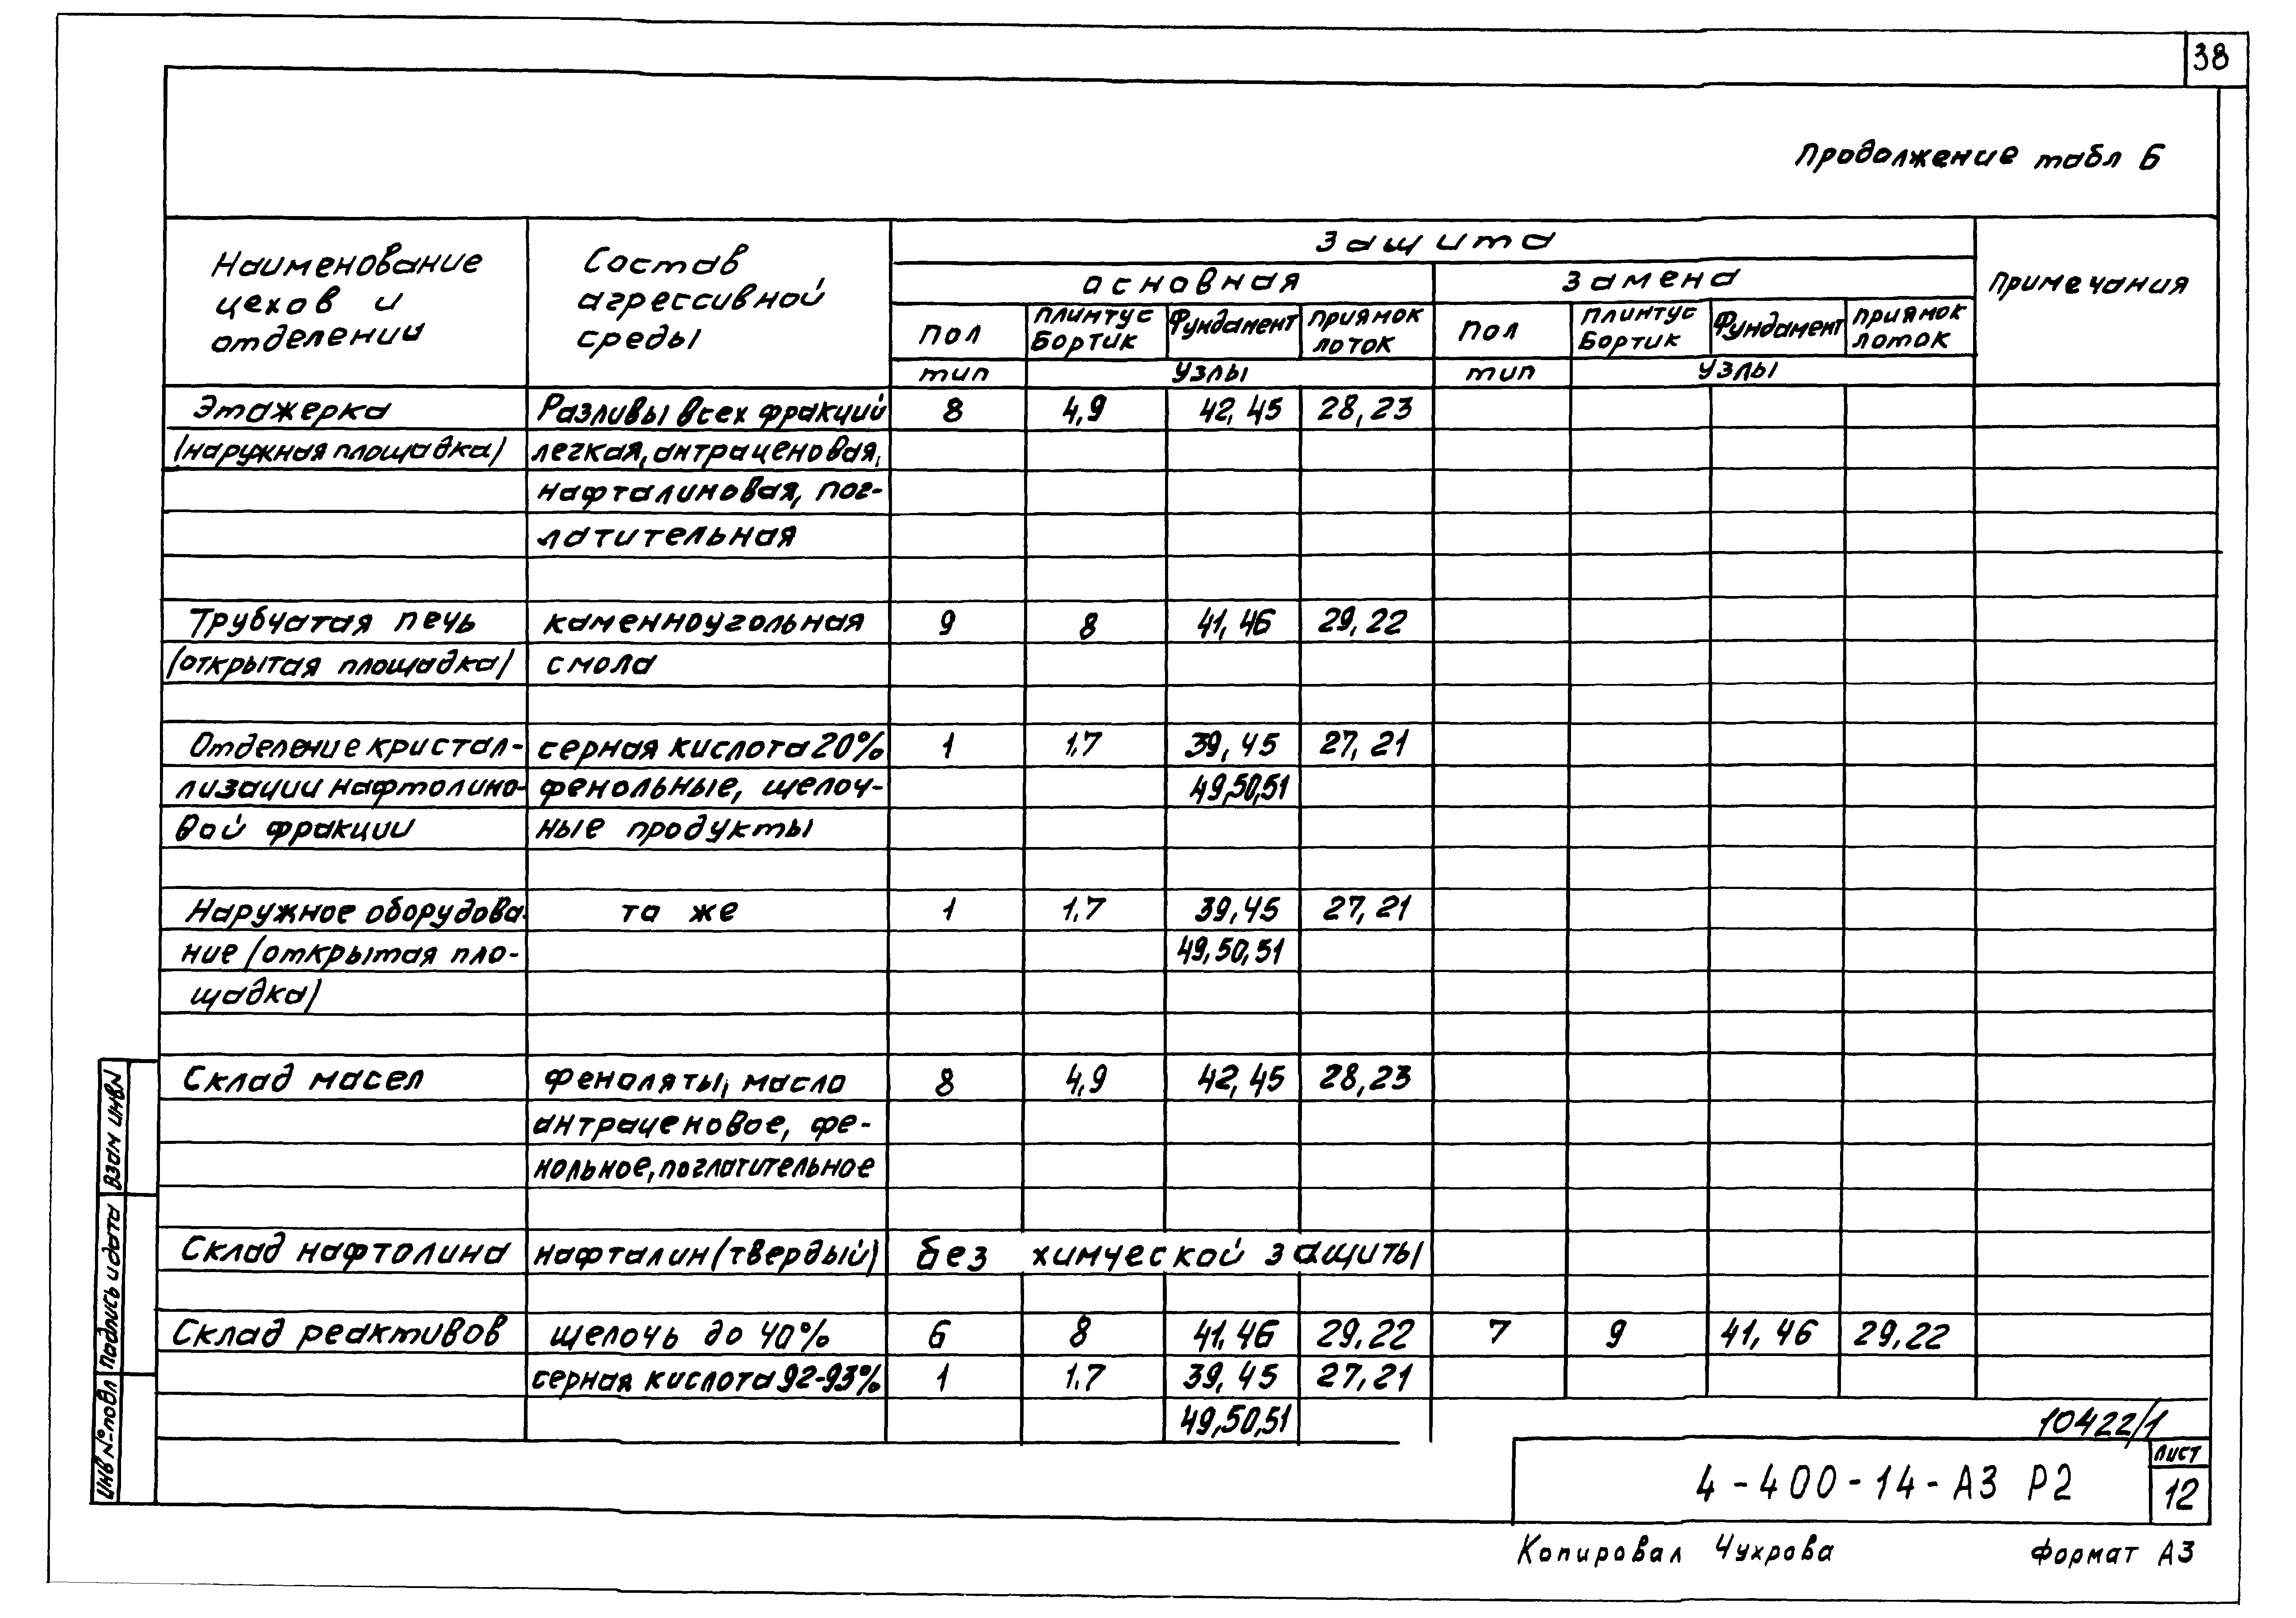 38
Продолжение табл 6
Наименование цехов и отделении
Состав агрессивной среды
Защита
основная
замена
Примечания
пол
плинтус бортик
Фундамент
приямок лоток
пол
плинтус бортик
Фундамент
приямок лоток
тип
узлы
тип
узлы
Этажерка Разливы всех фракций 8 4,9 42,45 28,23
(наружная площадка) легкая, антраценовая,
нафталиновая, пог-
латительная
Трубчатая печь каменноугольная 9 8 41,46 29,22
(открытая площадка) смола
Отделение кристал- серная кислота 20% 1 1,7 39,45 27,21
лизации нафтолино- фенольные, щелоч- 49,50,51
вой фракции ные продукты
Наружное оборудова- та же 1 1,7 39,45 27,21
ние (открытая пло- 49,50,51
щадка)
Склад масел феноляты, масло 8 4,9 42,45 28,23
антраценовое, фе-
нольное, поглатительное
Склад нафтолина нафталин (твердый) без химческой защиты
Склад реактивов щелочь до 40% 6 8 41,46 29,22 7 9 41,46 29,22
серная кислота 92-93% 1 1,7 39,45 27,21
49,50,51
10422/1
4-400-14-А3 Р2
лист
12
Копировал Чухрова Формат А3
Взам инв№
Падпись и дата
Инв № подл